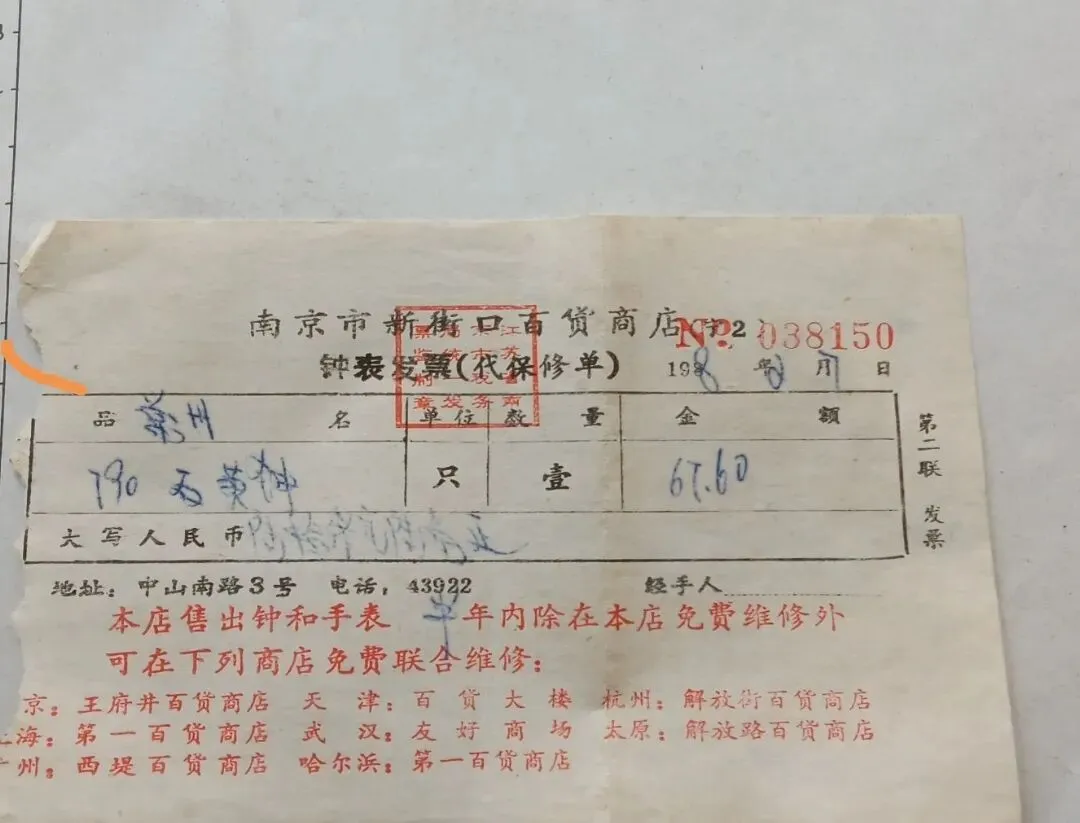 南京市新街口百货商店 字2
№ 038150
钟表发票(代保修单) 198 年 月 日
品 名 单位 数 量 金 额
790 只 壹 67.60
大写人民币
第二联 发票
地址：中山南路3号 电话：43922 经手人
本店售出钟和手表 半 年内除在本店免费维修外
可在下列商店免费联合维修：
京：王府井百货商店 天 津：百 货 大 楼 杭州：解放街百货商店
上海：第一百货商店 武 汉：友 好 商 场 太原：解放路百货商店
州：西堤百货商店 哈尔滨：第一百货商店